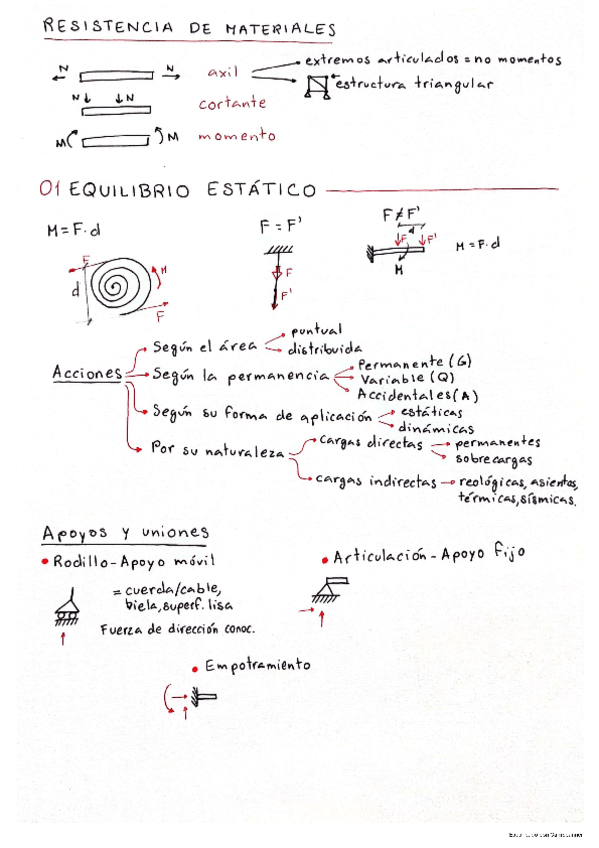 RESISTENCIA DE MATERIALES
N N axil extremos articulados = no momentos
estructura triangular
N N cortante
M M momento
01 EQUILIBRIO ESTÁTICO
M = F · d F = F' F ≠ F'
d
F F' M = F · d
M
F M d F
F
F'
Acciones
Según el área puntual
distribuida
Según la permanencia Permanente (G)
Variable (Q)
Accidentales (A)
Según su forma de aplicación estáticas
dinámicas
Por su naturaleza cargas directas permanentes
sobrecargas
cargas indirectas reológicas, asientos,
térmicas, sísmicas.
Apoyos y uniones
Rodillo - Apoyo móvil
= cuerda/cable,
biela, superf. lisa
Fuerza de dirección conoc.
Articulación - Apoyo fijo
Empotramiento